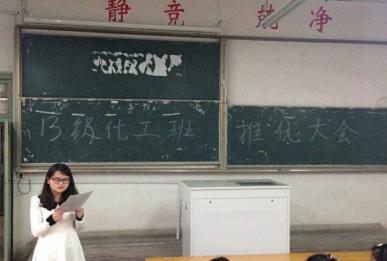 静 竞 乾 净
13级化工班 推优大会